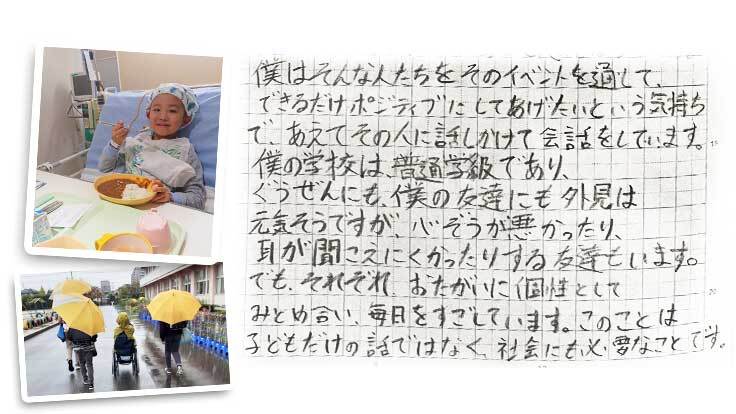 僕はそんな人たちをそのイベントを通して、
できるだけポジティブにしてあげたいという気持ち
で、あえてその人に話しかけて会話をしています。
僕の学校は、普通学級であり、
ぐうぜんにも、僕の友達にも外見は
元気そうですが、心ぞうが悪かったり、
耳が聞こえにくかったりする友達もいます。
でも、それぞれ、おたがいに個性として
みとめ合い、毎日をすごしています。このことは
子どもだけの話ではなく、社会にも必要なことです。